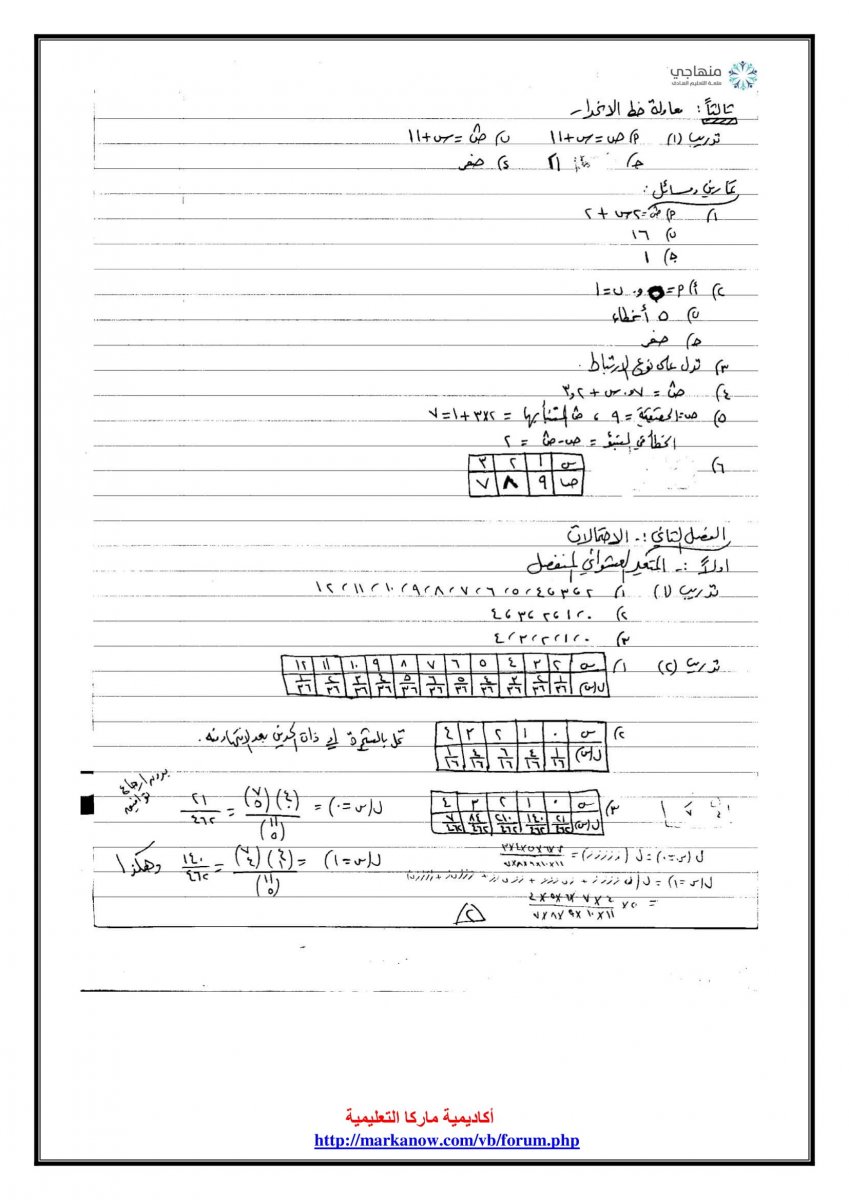 منهاجي
متعة التعليم الهادف
ثالثاً : معادلة خط الانحدار
تدريب (١) P) صَ = -س + ١١ ب) صَ = -س + ١١
ج) ٢١ د) صفر
تمارين ومسائل :
١) P) صَ = ٢س + ٢
ب) ١٦
ج) ١
٢) أ) P = و ب = ١
ب) ٥ أخطاء
ج) صفر
٣) تدل على نوع الارتباط .
٤) صَ = ٠,٧ س + ٣,٢
٥) ص الحقيقية = ٩ ، صَ المتنبأ بها = ٢×٣ + ١ = ٧
الخطأ في التنبؤ = ص - صَ = ٢
٦) س ١ ٢ ٣
ص ٩ ٨ ٧
الفصل الثاني :- الاحتمالات
اولاً :- المتغير العشوائي المنفصل
تدريب (١) ١) ٢ ، ٣ ، ٤ ، ٥ ، ٦ ، ٧ ، ٨ ، ٩ ، ١٠ ، ١١ ، ١٢
٢) ٠ ، ١ ، ٢ ، ٣ ، ٤
٣) ٠ ، ١ ، ٢ ، ٣ ، ٤
تدريب (٢) ١) س ٢ ٣ ٤ ٥ ٦ ٧ ٨ ٩ ١٠ ١١ ١٢
ل(س) ١/٣٦ ٢/٣٦ ٣/٣٦ ٤/٣٦ ٥/٣٦ ٦/٣٦ ٥/٣٦ ٤/٣٦ ٣/٣٦ ٢/٣٦ ١/٣٦
٢) س ٠ ١ ٢ ٣ ٤
ل(س) ١/١٦ ٤/١٦ ٦/١٦ ٤/١٦ ١/١٦
بدون ارجاع
٣) س ٠ ١ ٢ ٣ ٤
ل(س) ٢١/٤٦٢ ١٤٠/٤٦٢ ٢١٠/٤٦٢ ٨٤/٤٦٢ ٧/٤٦٢
ل(س=٠) = (٤ ٠)(٧ ٥) / (١١ ٥) = ٢١/٤٦٢
ل(س=١) = (٤ ١)(٧ ٤) / (١١ ٥) = ١٤٠/٤٦٢ وهكذا
٢
أكاديمية ماركا التعليمية
http://markanow.com/vb/forum.php